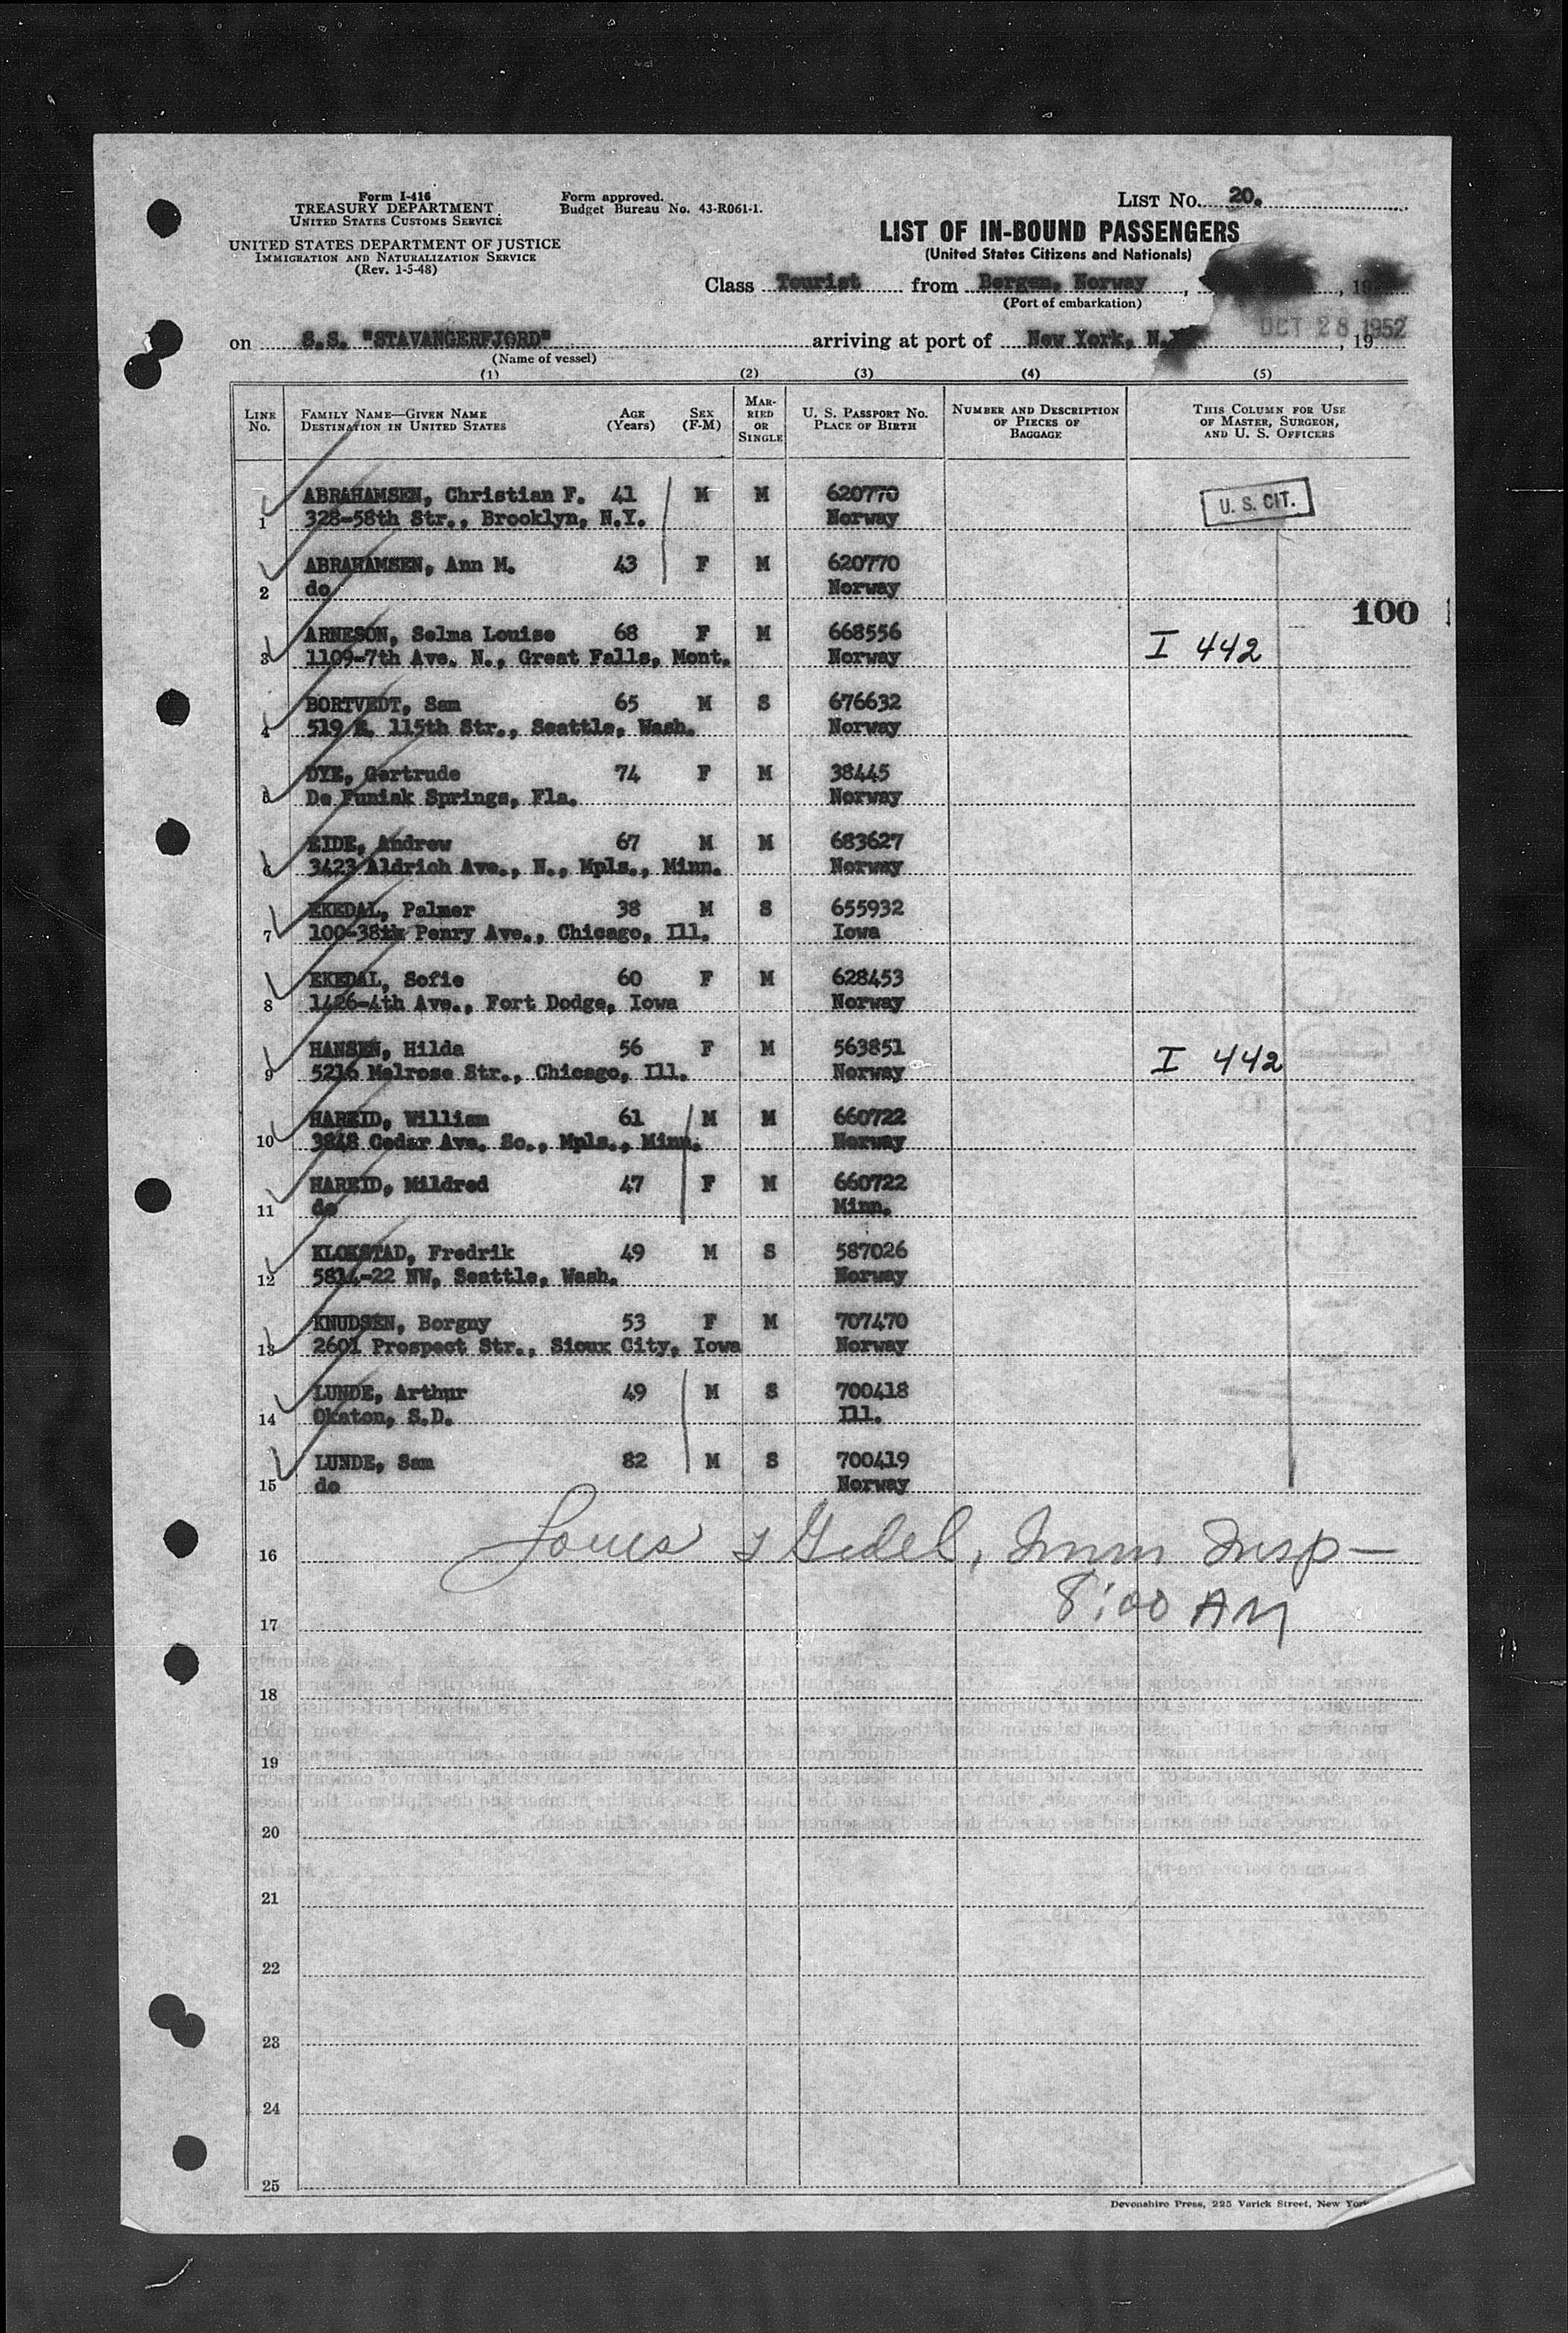 Form I-416
TREASURY DEPARTMENT
UNITED STATES CUSTOMS SERVICE
UNITED STATES DEPARTMENT OF JUSTICE
IMMIGRATION AND NATURALIZATION SERVICE
(Rev. 1-5-48)
Form approved.
Budget Bureau No. 43-R061-1.
LIST NO. 20.
LIST OF IN-BOUND PASSENGERS
(United States Citizens and Nationals)
Class Tourist from Bergen, Norway, , 19
(Port of embarkation)
on S.S. "STAVANGERFJORD" arriving at port of New York, N.Y. OCT 28 1952, 19
(Name of vessel)
(1) (2) (3) (4) (5)
LINE NO.
FAMILY NAME—GIVEN NAME
DESTINATION IN UNITED STATES
AGE (Years)
SEX (F-M)
MARRIED OR SINGLE
U. S. PASSPORT NO.
PLACE OF BIRTH
NUMBER AND DESCRIPTION OF PIECES OF BAGGAGE
THIS COLUMN FOR USE OF MASTER, SURGEON, AND U. S. OFFICERS
ABRAHAMSEN, Christian F. 41 M M 620770 U. S. CIT.
1 328-58th Str., Brooklyn, N.Y. Norway
ABRAHAMSEN, Ann M. 43 F M 620770
2 do Norway
100
ARNESON, Selma Louise 68 F M 668556 I 442
3 1109-7th Ave. N., Great Falls, Mont. Norway
BORTVEDT, Sam 65 M S 676632
4 519 115th Str., Seattle, Wash. Norway
DYE, Gertrude 74 F M 38445
5 De Funiak Springs, Fla. Norway
EIDE, Andrew 67 M M 683627
6 3423 Aldrich Ave., N., Mpls., Minn. Norway
EKEDAL, Palmer 38 M S 655932
7 100-38th Penry Ave., Chicago, Ill. Iowa
EKEDAL, Sofie 60 F M 628453
8 1426-4th Ave., Fort Dodge, Iowa Norway
HANSEN, Hilda 56 F M 563851 I 442
9 5216 Melrose Str., Chicago, Ill. Norway
HAREID, William 61 M M 660722
10 3848 Cedar Ave. So., Mpls., Minn. Norway
HAREID, Mildred 47 F M 660722
11 do Minn.
KLOKSTAD, Fredrik 49 M S 587026
12 5814-22 NW, Seattle, Wash. Norway
KNUDSEN, Borgny 53 F M 707470
13 2601 Prospect Str., Sioux City, Iowa Norway
LUNDE, Arthur 49 M S 700418
14 Okaton, S.D. Ill.
LUNDE, Sam 82 M S 700419
15 do Norway
16 Imm Insp—
17 8:00 AM
18
19
20
21
22
23
24
25
Devonshire Press, 225 Varick Street, New York